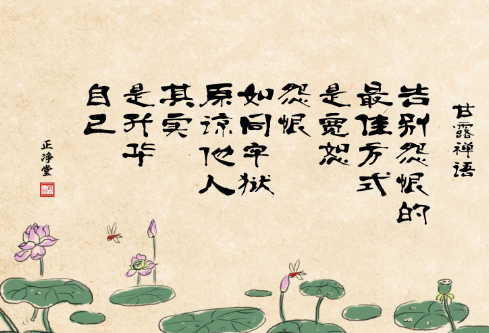 甘露禅语
告别怨恨的
最佳方式
是宽恕
怨恨
如同牢狱
原谅他人
其实
是升华
自己
正净堂